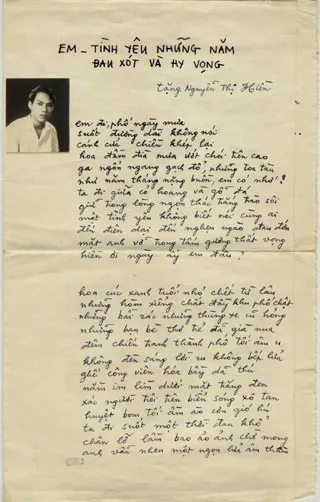 EM _ TÌNH YÊU NHỮNG NĂM
ĐAU XÓT VÀ HY VỌNG
tặng Nguyễn Thị Hiền
em đi, phố ngày mưa
suốt đường dài không nói
cánh cửa chiều khép lại
hoa đẫm đìa mưa ướt chói trên cao
ga ngổn ngang gạch đổ, những toa tàu
như năm tháng nặng buồn, em có nhớ?
ta đi giữa cỏ hoang và gỗ đá
giữ trong lòng ngọn thác trắng réo sôi
một tình yêu không biết nói cùng ai
đến điên dại đến nghẹn ngào đau đớn
mặt anh vỡ trong tấm gương thất vọng
hiên đi ngày ấy em đâu?
hoa cúc xanh tuổi nhỏ chết từ lâu
những hòm xiểng chất đầy khu phố chật
những bãi rác những thùng xe cũ hỏng
những bạn bè thơ trẻ đã già nua
đêm chiến tranh thành phố tối âm u
không đèn sáng lối ru không bếp lửa
ghế công viên hóa bầy đá thú
nằm im lìm dưới mặt trăng đen
xác người trôi trên biển sóng xô tan
huyệt bom tối ầm ào cơn gió hú
ta đi suốt một thời đau khổ
chân lỡ lầm bao ảo ảnh chờ mong
anh vẫn nhen một ngọn lửa âm thầm